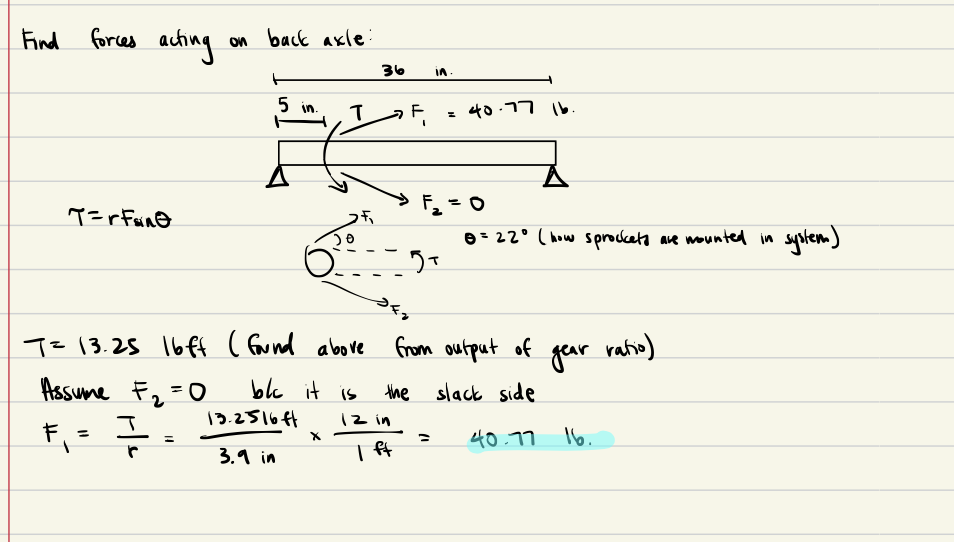 Find forces acting on back axle:
36 in.
5 in. T F₁ = 40.77 lb.
F₂ = 0
T = rFsinθ
F₁
θ θ = 22° (how sprockets are mounted in system)
T
F₂
T = 13.25 lbft (found above from output of gear ratio)
Assume F₂ = 0 b/c it is the slack side
F₁ = T/r = 13.25 lbft / 3.9 in × 12 in / 1 ft = 40.77 lb.